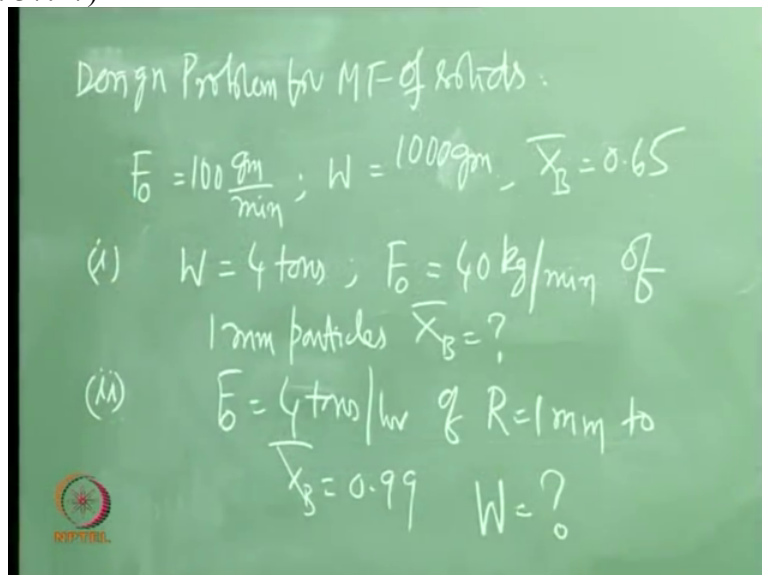 Design Problem for MF of solids.
F₀ = 100 gm/min ; W = 1000gm, X̄_B = 0.65
(i) W = 4 tons ; F₀ = 40 kg/min of
1 mm particles X̄_B = ?
(ii) F₀ = 4 tons/hr of R = 1 mm to
X̄_B = 0.99 W = ?
NPTEL